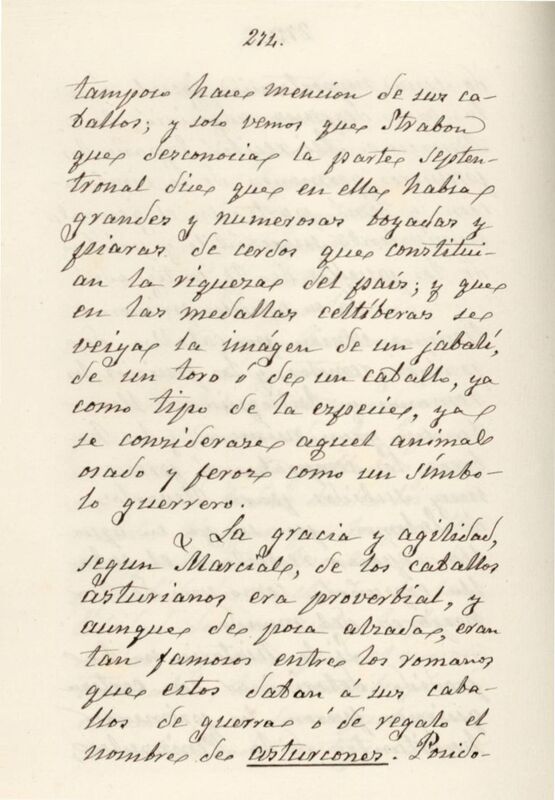 274.
tampoco hace mencion de sus ca-
ballos; y solo vemos que Strabon
que desconocia la parte septen-
tronal dice que en ella habia
grandes y numerosas boyadas y
piaras de cerdos que constitui-
an la riqueza del país; y que
en las medallas celtíberas se
veiya la imágen de un jabalí,
de un toro ó de un caballo, ya
como tipo de la especie, ya
se considerase aquel animal
osado y feroz como un símbo-
lo guerrero.
La gracia y agilidad,
segun Marcial, de los caballos
asturianos era proverbial, y
aunque de poca alzada, eran
tan famosos entre los romanos
que estos daban á sus caba-
llos de guerra ó de regalo el
nombre de asturcones. Posido-